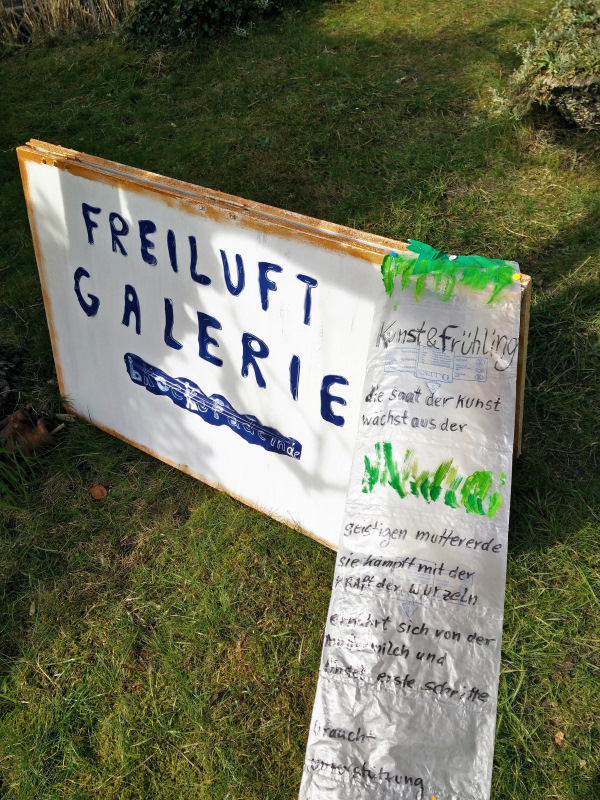 FREILUFT
GALERIE
Kunst&Frühling
die saat der kunst
wächst aus der
geistigen muttererde
sie kämpft mit der
kraft der wurzeln
ernährt sich von der
muttermilch und
findet erste schritte
braucht
unterstützung